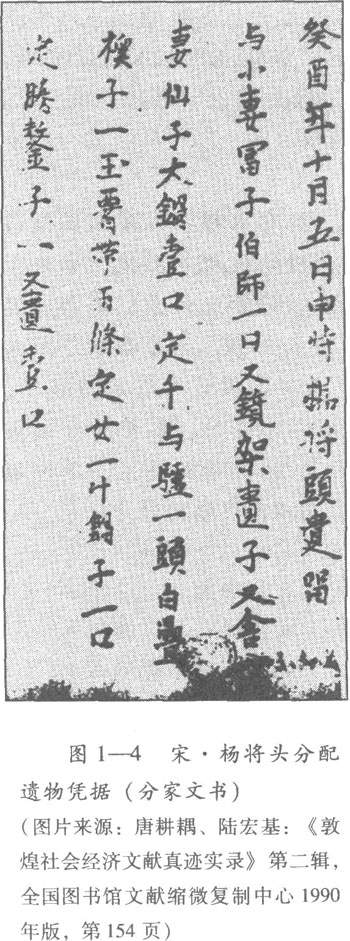 癸酉年十月五日申時楊将頭遺留
与小妻冨子伯師一口又鏡架匱子又舍
妻仙子大鍋壹口定千与驢一頭白疊
襖子一玉署帶五條定女一斗鍋子一口
定勝鏊子一又匱壹口
图1—4 宋·杨将头分配
遗物凭据（分家文书）
（图片来源：唐耕耦、陆宏基：《敦
煌社会经济文献真迹实录》第二辑，
全国图书馆文献缩微复制中心1990
年版，第154页）